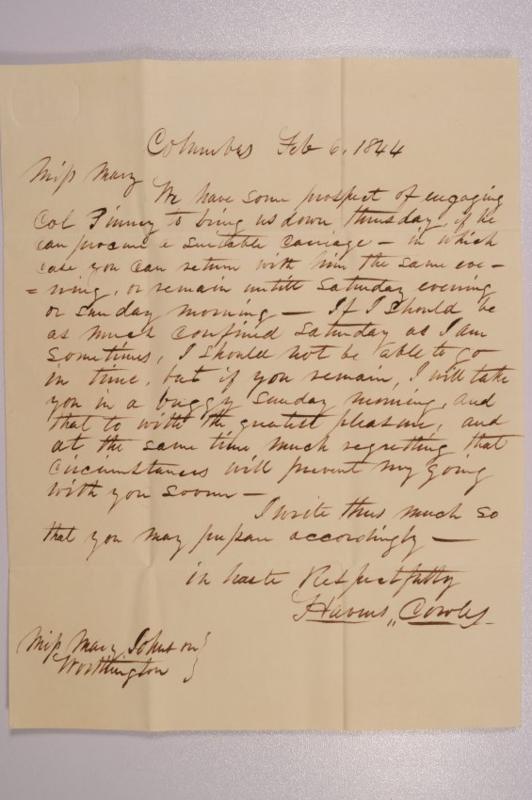 Columbus Feb 6, 1844
Miss Mary
We have some prospect of engaging
Col Finney to bring us down thursday, if he
can procure a suitable carriage — in which
case you can return with him the same eve-
= ning, or remain untill Saturday evening
or sunday morning — If I should be
as much confined Saturday as I am
sometimes, I should not be able to go
in time, but if you remain, I will take
you in a buggy Sunday morning, and
that to with the greatest pleasure, and
at the same time much regretting that
circumstances will prevent my going
with you sooner —
I write thus much so
that you may prepare accordingly —
in haste Respectfully
Havens, Cowles
Miss Mary Johnson }
Worthington }